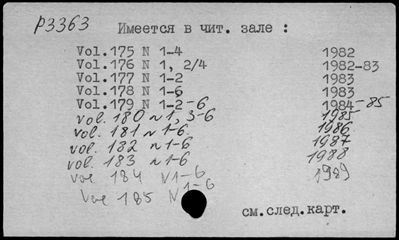 P3363
Имеется в чит. зале :
Vol.175 N 1-4 1982
Vol.176 N 1, 2/4 1982-83
Vol.177 N 1-2 1983
Vol.178 N 1-6 1983
Vol.179 N 1-2-6 1984-85
vol. 180 N 1, 3-6 1985
vol. 181 N 1-6. 1986
vol. 182 N 1-6 1987
vol. 183 N 1-6 1988
vol 184 N 1-6 1989
Vol 185 N 1-6
см.след.карт.